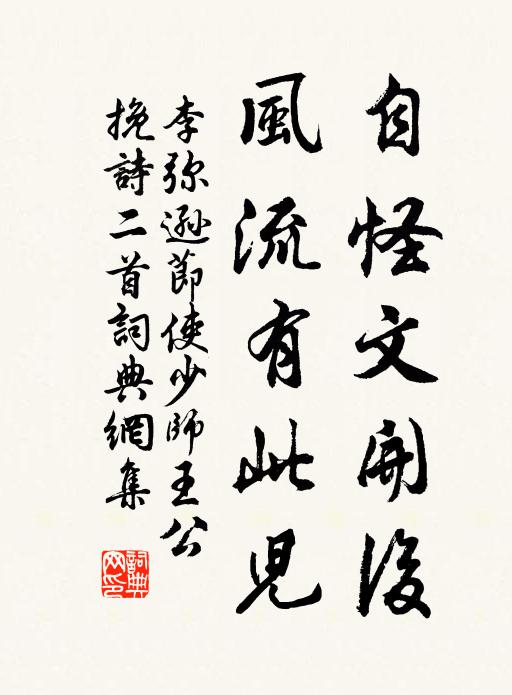 自怪文開後
風流有此兒
李弥遜節使少師王公
挽詩二首詞典網集
詞典網印